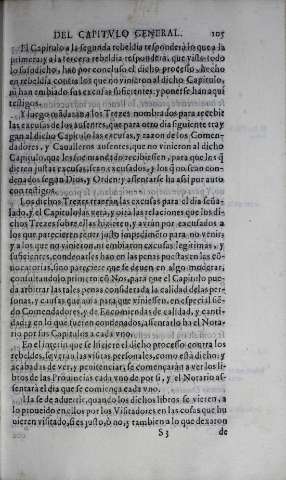 DEL CAPITVLO GENERAL. 105
El Capitulo a la segunda rebeldia responderà lo que a la
primera: y a la tercera rebeldia responderà, que visto todo
lo susodicho, hão por concluso el dicho processo, y hecho
en rebeldia contra los que no vinieron al dicho Capitulo,
ni han embiado sus escusas suficientes: y ponerse han aqui
testigos.
Y luego mãdaràn a los Trezes nombrados para recebir
las escusas de los ausentes, que para otro dia siguiente tray
gan al dicho Capitulo las escusas, y razon de los Comen-
dadores, y Caualleros ausentes, que no vinieron al dicho
Capitulo, que les fue mandado recibiessen, para que los q̃
dieren justas escusas, sean escusados, y los q̃ no sean con-
denados segun Dios, y Orden: y assentarse ha assi por auto
con testigos.
Los dichos Trezes traeràn las escusas para el dia seña-
lado, y el Capitulo las verà, y oirà las relaciones que los di-
chos Trezes sobre ellas hizieren, y auràn por escusados a
los que parecieren tener justo impedimẽto para no venir:
y a los que no vinieron, ni embiaron escusas legitimas, y
suficientes, condenarlos han en las penas puestas en las cõ-
uocatorias, sino pareciere que se deuen en algo moderar,
consultandolo primero cõ Nos, para que el Capitulo pue-
da arbitrar las tales penas considerada la calidad de las per-
sonas, y causas que auia para que viniessen, en especial siẽ-
do Comendadores, y de Encomiendas de calidad, y canti-
dad: y en lo que fueren condenados, assentarlo ha el Nota-
rio por sus Capitulos a cada vno.
En el interin que se hiziere el dicho processo contra los
rebeldes, se veràn las visitas personales, como està dicho: y
acabadas de ver, y penitenciar, se començaràn a ver los li-
bros de las Prouincias cada vno de por si, y el Notario as-
sentarà el dia que se comiença cada vno.
Ha se de aduertir, quando los dichos libros se vieren, a
lo proueido en ellos por los Visitadores en las cosas que hu
uieren visitado, si es justo, ò no, y tambien a lo que dexaron
S 3 de